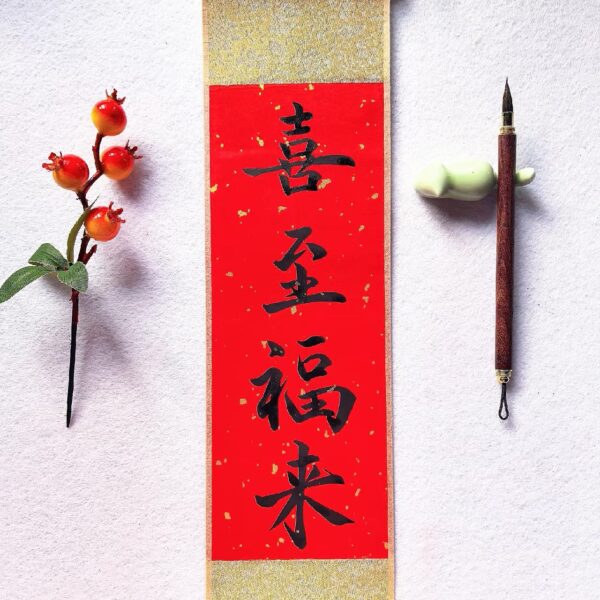 喜至福来